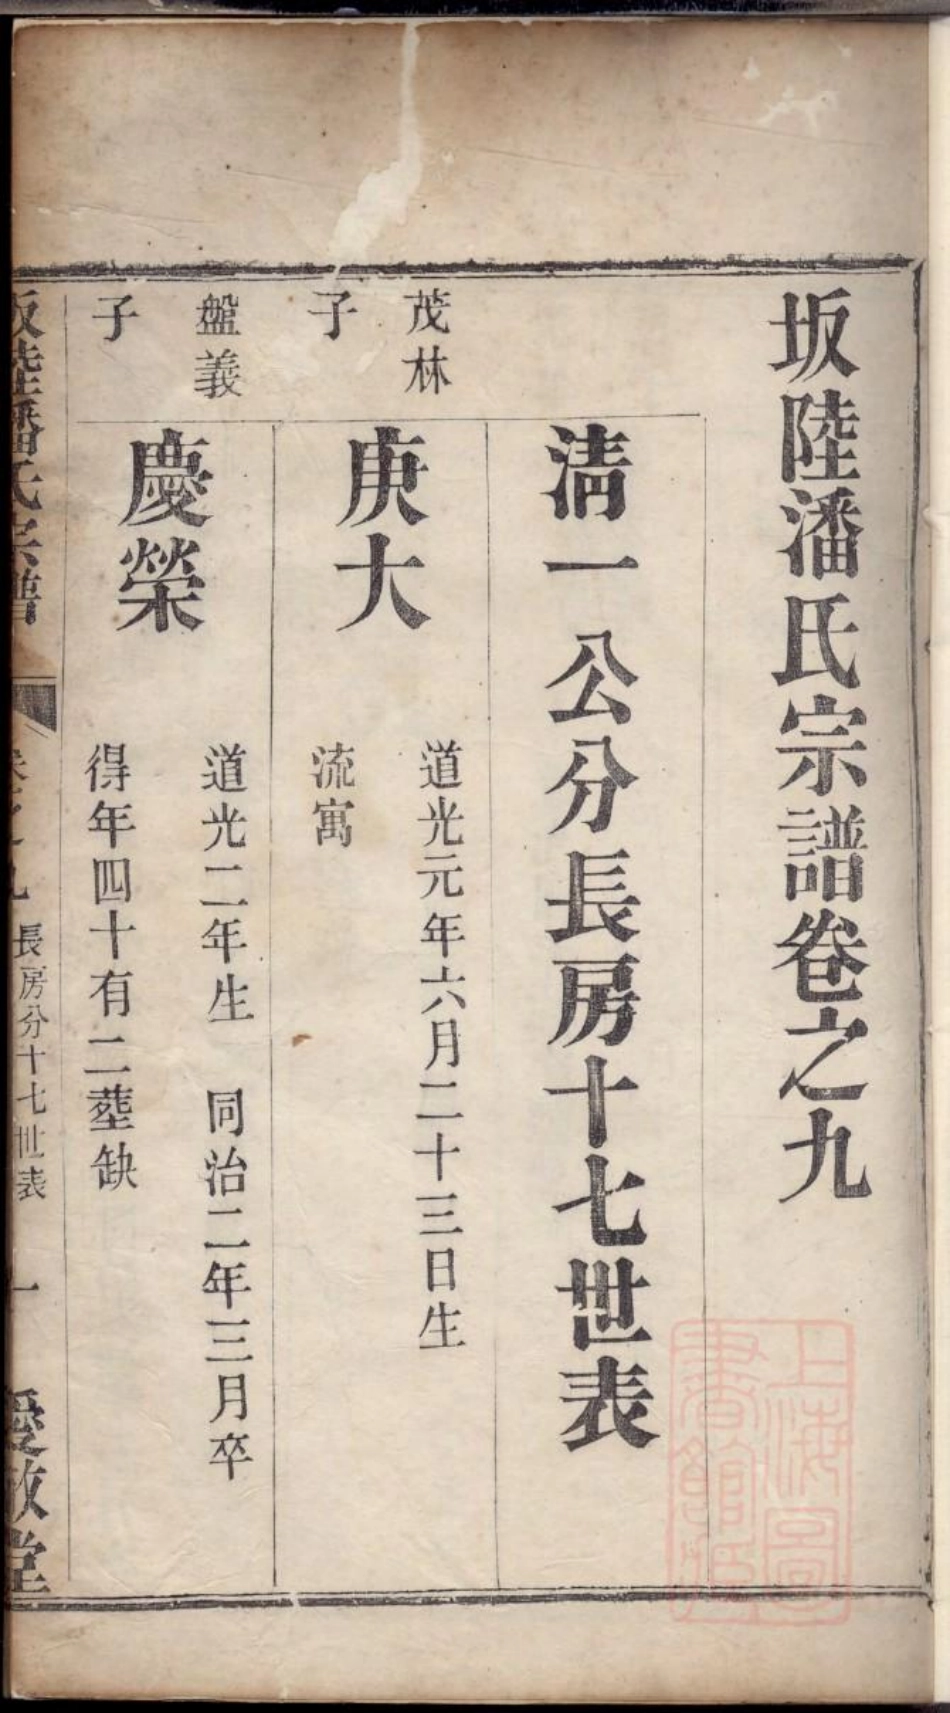 坂陸潘氏宗譜卷之九
清一公分長房十七世表
茂林
子
庚大
道光元年六月二十三日生
流寓
盤義
子
慶榮
道光二年生 同治二年三月卒
得年四十有二塟缺
坂陸潘氏宗譜
卷之九 長房分十七世表 一
愛敬堂
上海圖
書館藏